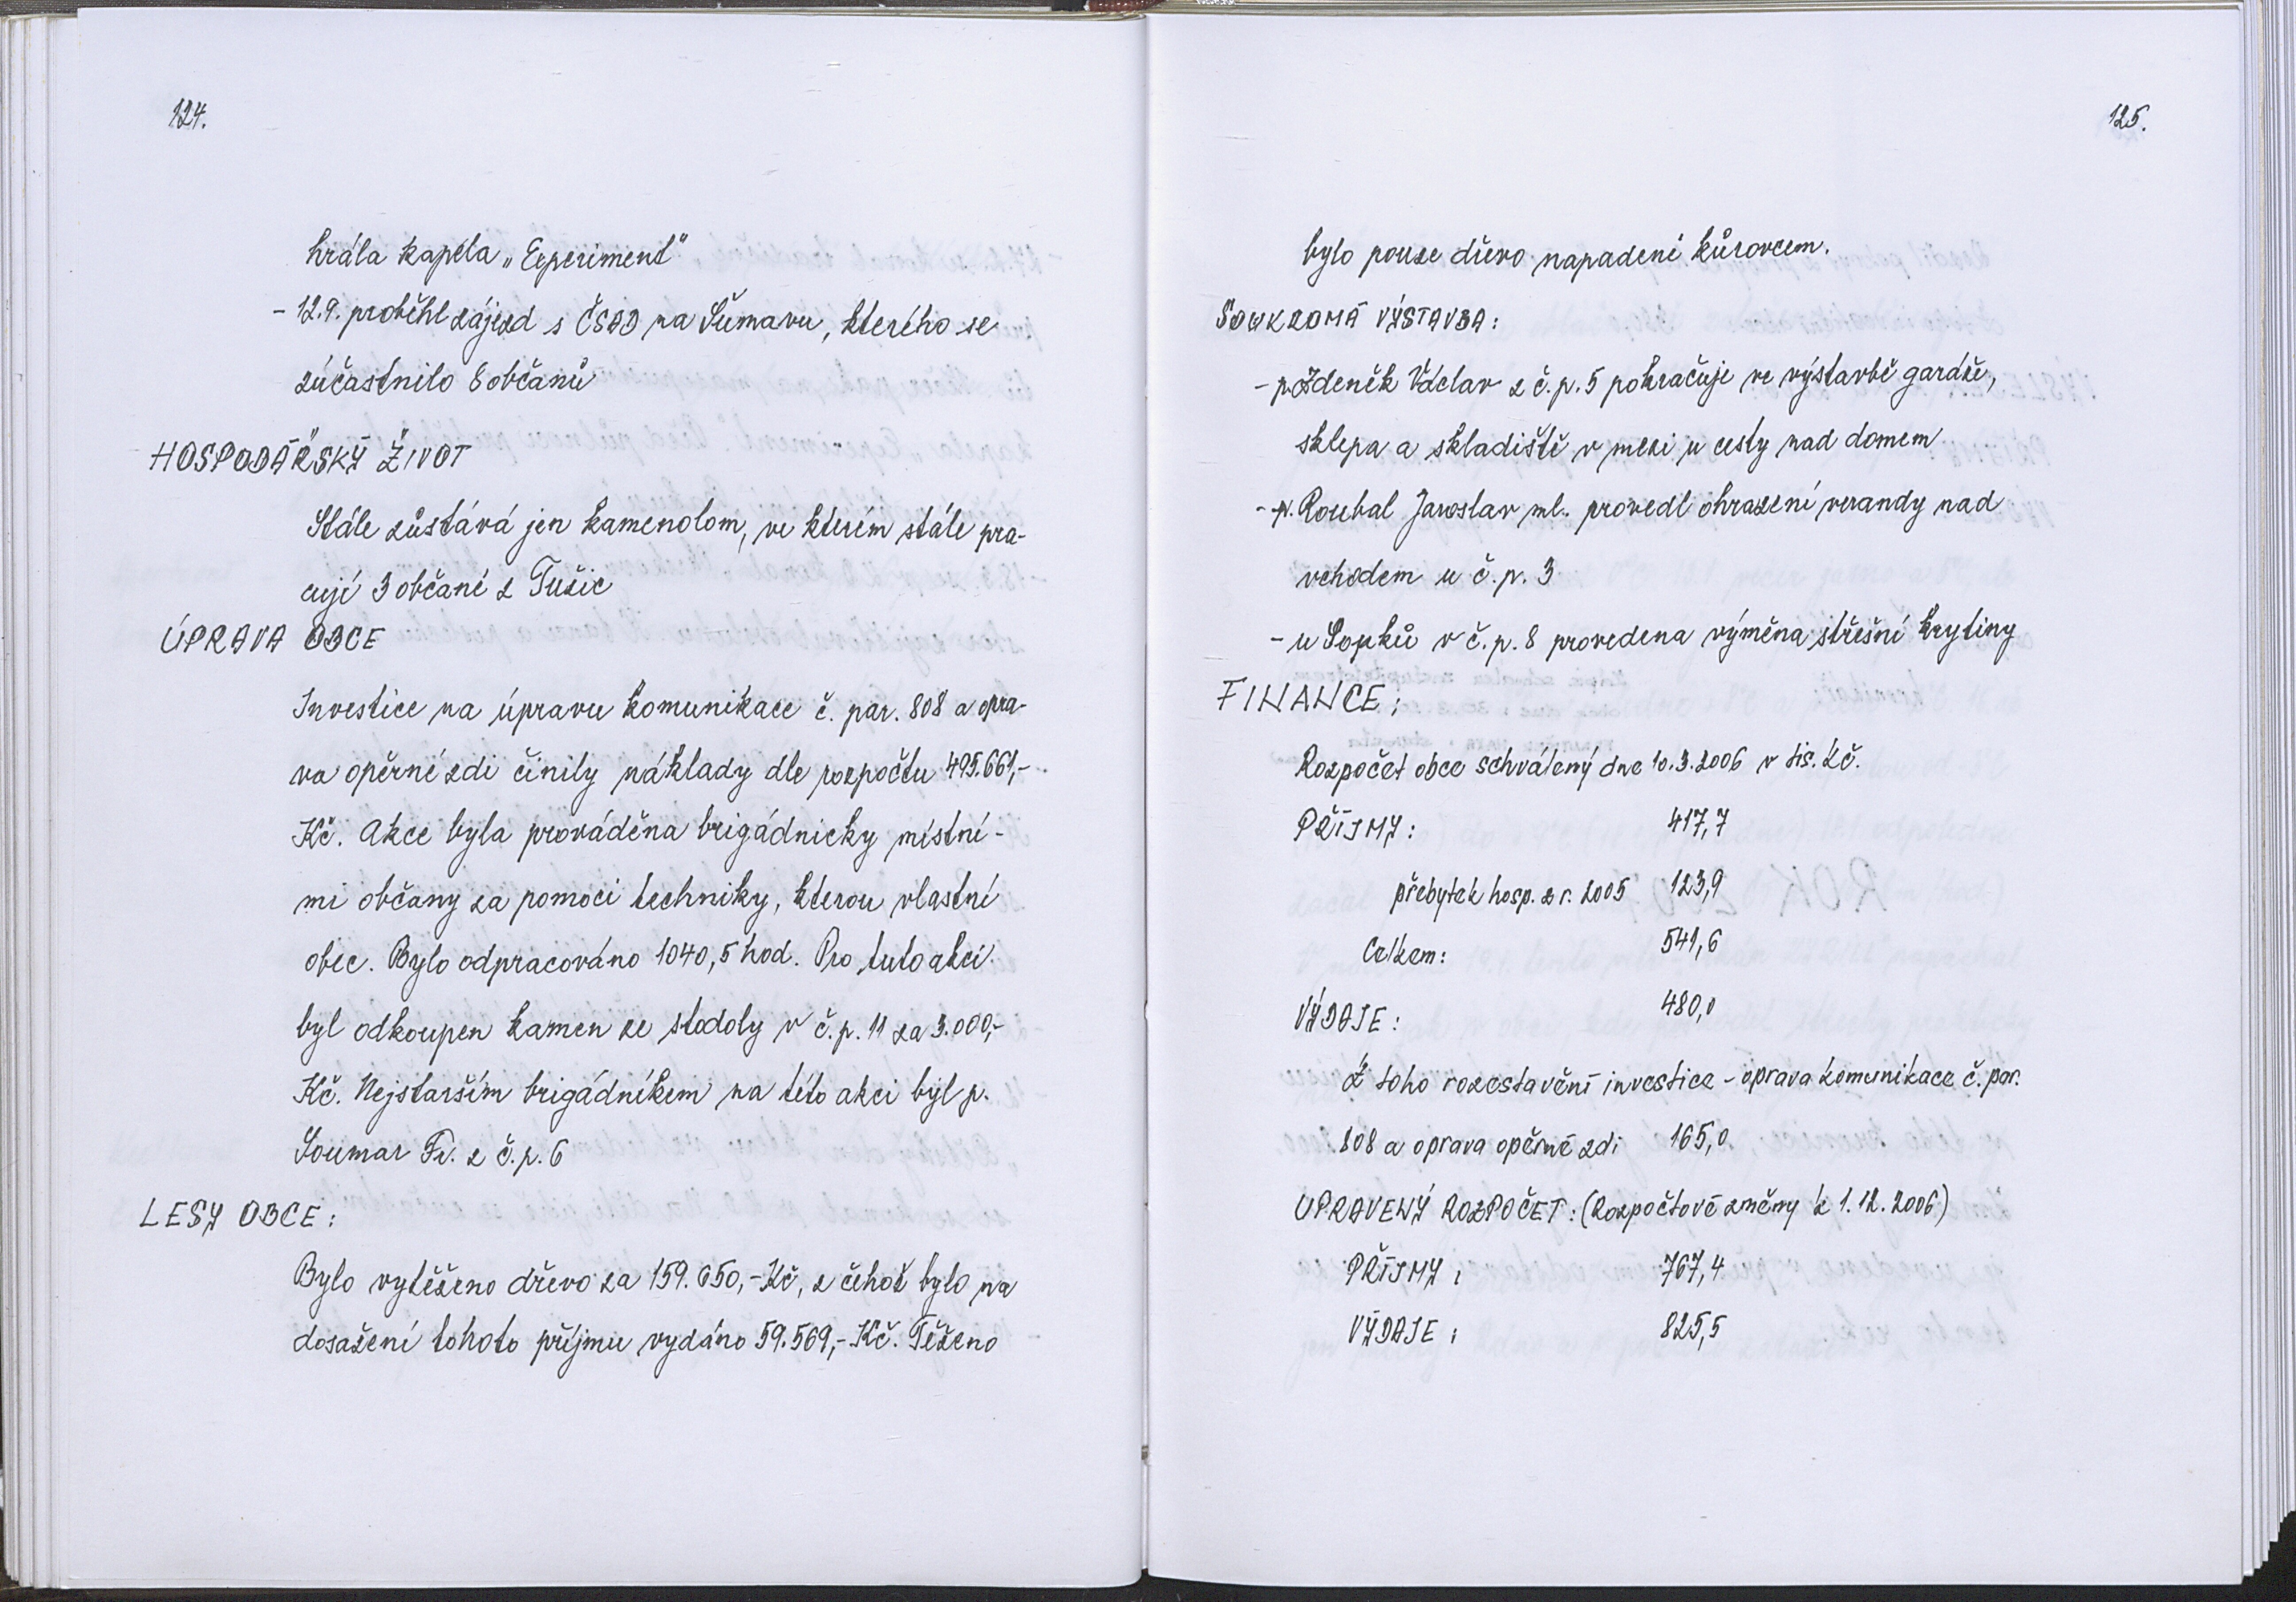 124.
hrála kapela „Experiment"
- 12.9. proběhl zájezd s ČSAD na Šumavu, kterého se
zúčastnilo 8 občanů
HOSPODÁŘSKÝ ŽIVOT
Stále zůstává jen kamenolom, ve kterém stále pra-
cují 3 občané z Tužic
ÚPRAVA OBCE
Investice na úpravu komunikace č. par. 808 a opra-
va opěrné zdi činily náklady dle rozpočtu 495.661,-
Kč. Akce byla prováděna brigádnicky místní-
mi občany za pomoci techniky, kterou vlastní
obec. Bylo odpracováno 1040,5 hod. Pro tuto akci
byl odkoupen kamen ze stodoly v č.p. 11 za 3.000,-
Kč. Nejstarším brigádníkem na této akci byl p.
Soumar Fr. z č.p. 6
LESY OBCE:
Bylo vytěženo dřevo za 159.650,- Kč, z čehož bylo na
dosažení tohoto příjmu vydáno 59.569,- Kč. Těženo
125.
bylo pouze dřevo napadené kůrovcem.
SOUKROMÁ VÝSTAVBA:
- p. Zdeněk Václav z č.p. 5 pokračuje ve výstavbě garáže,
sklepa a skladiště v mezi u cesty nad domem
- p. Roubal Jaroslav ml. provedl ohrazení verandy nad
vchodem u č.p. 3
- u Soupků v č.p. 8 provedena výměna střešní krytiny
FINANCE:
Rozpočet obce schválený dne 10.3.2006 v tis. Kč.
PŘÍJMY: 417,7
přebytek hosp. z r. 2005 123,9
Celkem: 541,6
VÝDAJE: 480,0
Z toho rozestavění investice - oprava komunikace č. par.
808 a oprava opěrné zdi 165,0
UPRAVENÝ ROZPOČET: (Rozpočtové změny k 1.12.2006)
PŘÍJMY: 767,4
VÝDAJE: 825,5